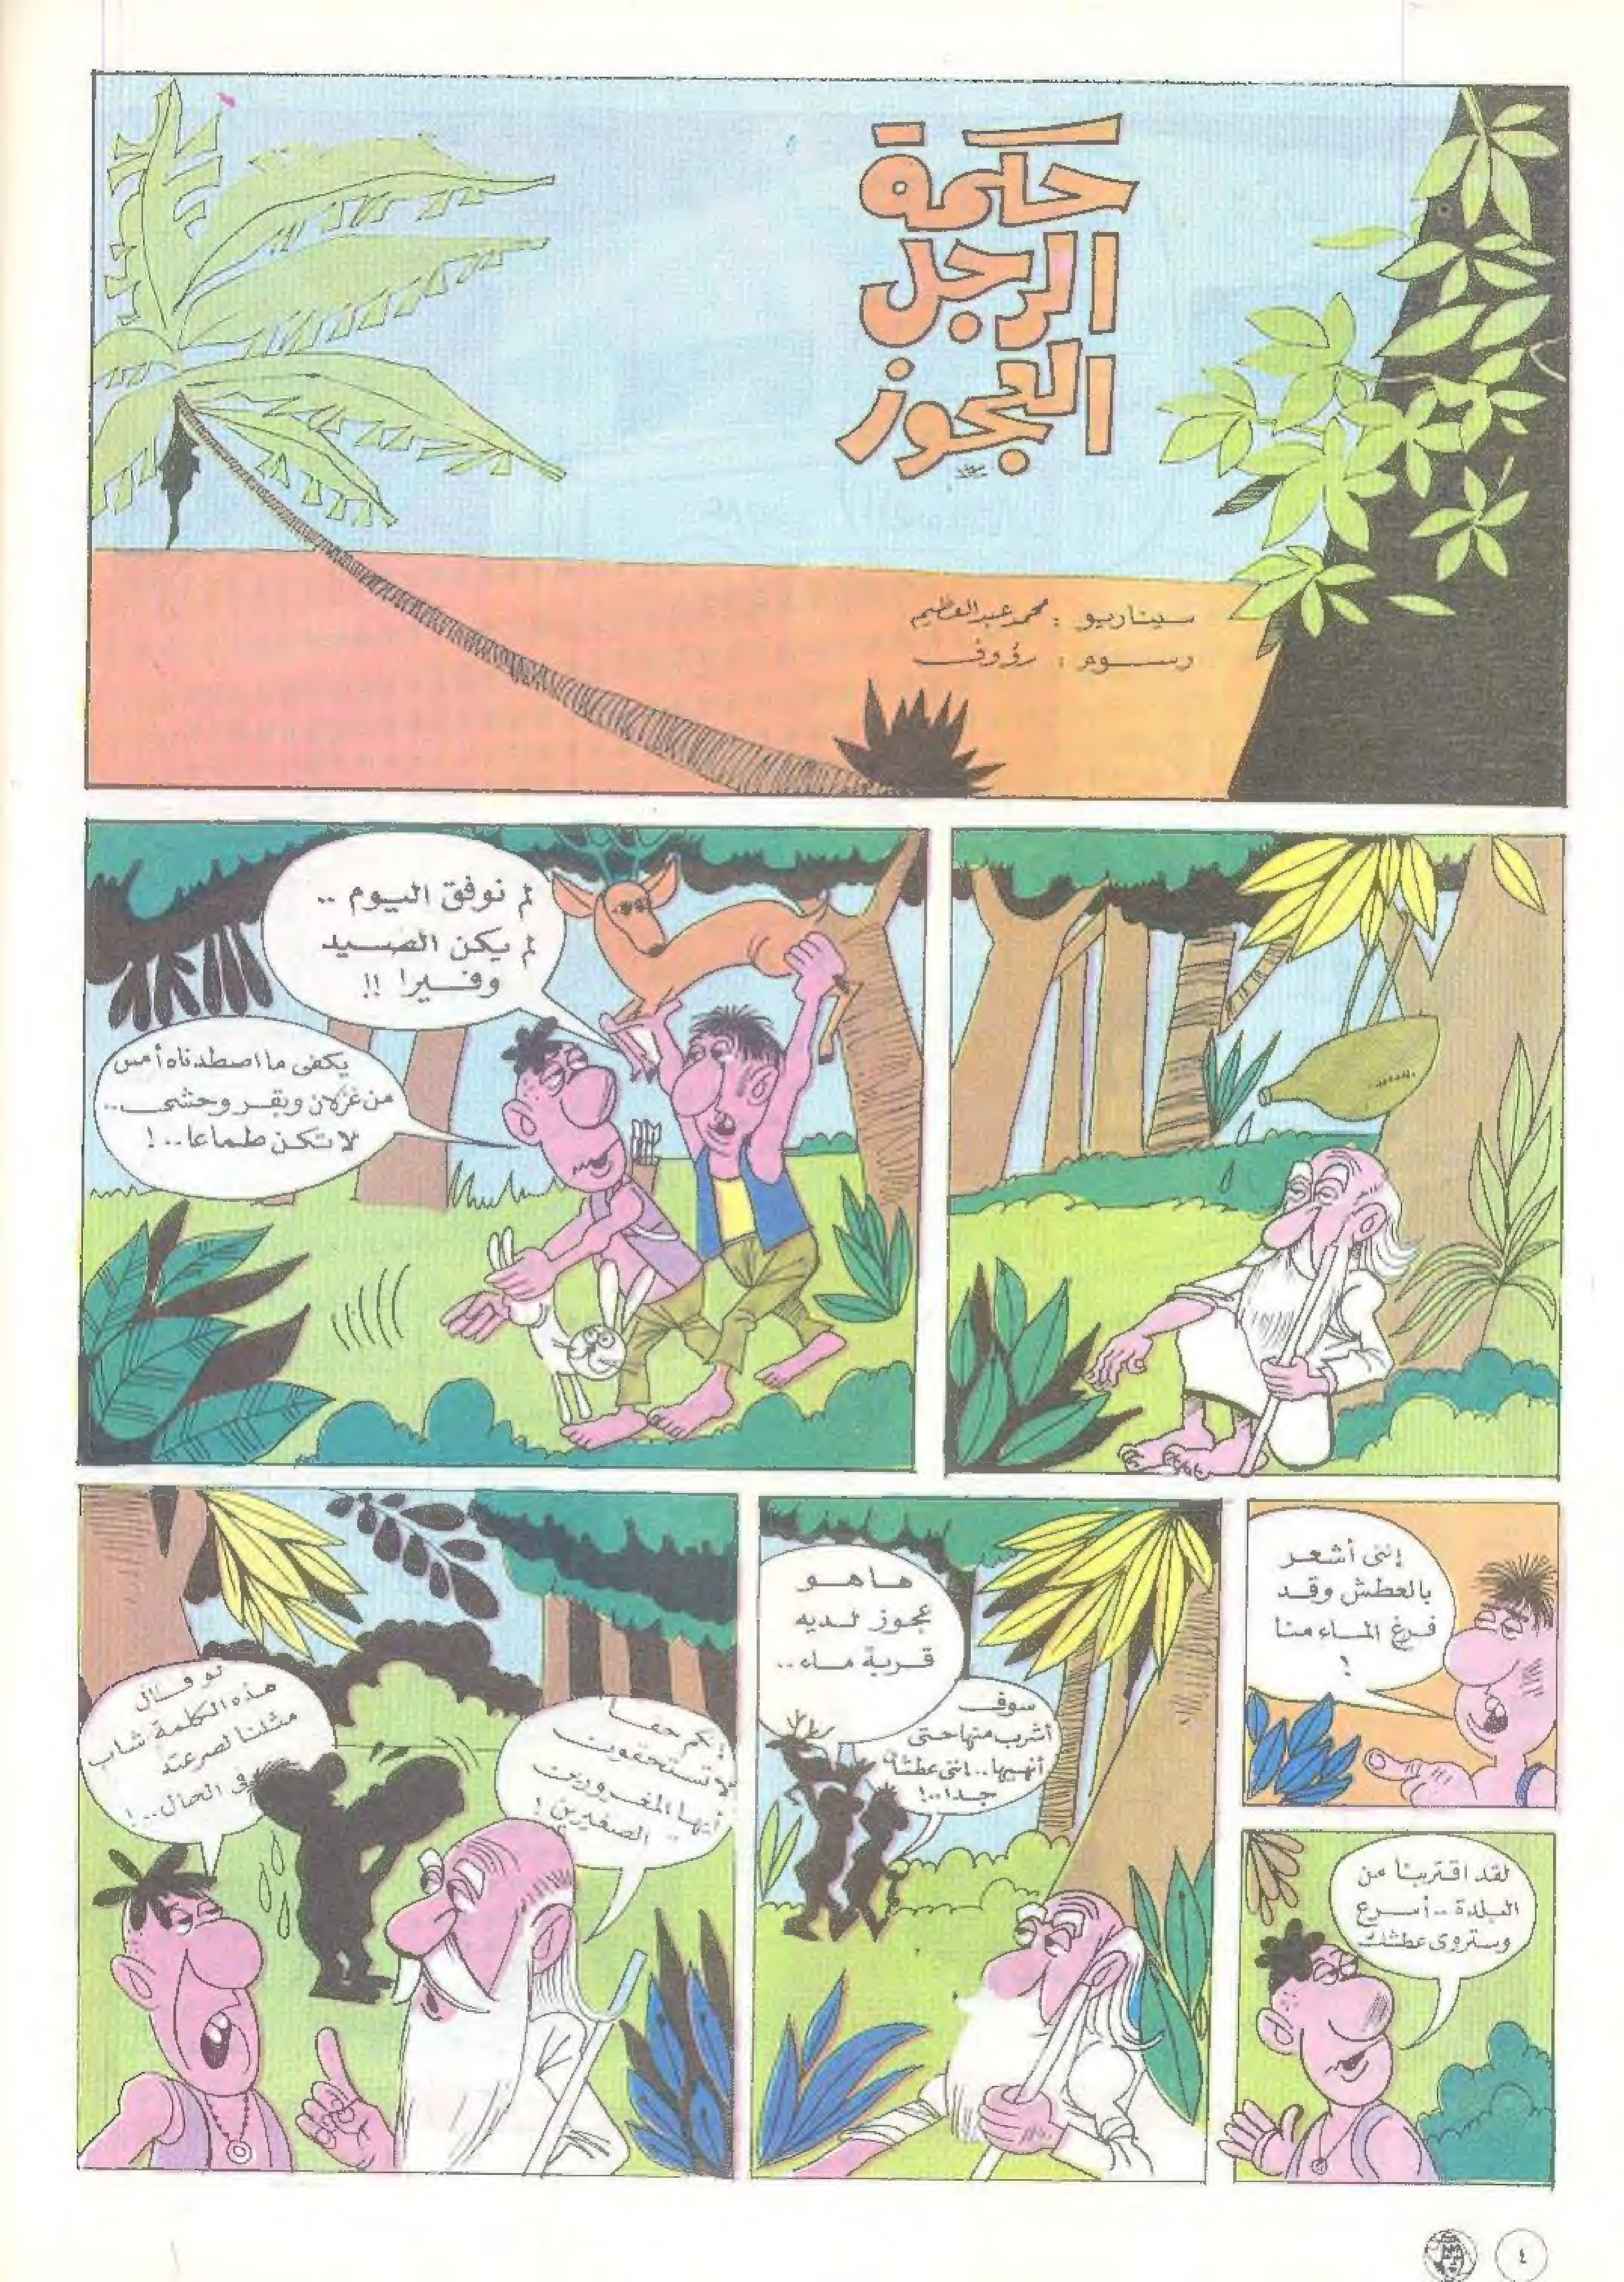 حكمة
الرجل
العجوز
سيناريو : محمد عبدالعظيم
رسوم : رؤوف
لم نوفق اليوم ..
لم يكن الصيد
وفيرا !!
يكفى ما اصطدناه أمس
من غزلان وبقر وحشى ..
لا تكن طماعا .. !
إننى أشعر
بالعطش وقد
فرغ الماء منا
!
لقد اقتربنا من
البلدة .. أسرع
وستروى عطشك
ها هو
عجوز لديه
قربة ماء ..
سوف
أشرب منها حتى
أنهيها .. إننى عطشان
جدا .. !
إنكم حقا
لا تستحقون
أيها المغرورين
الصغيرين !
لو قال
هذه الكلمة شاب
مثلنا لصرعته
فى الحال .. !
٤